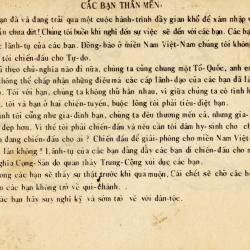 CÁC BẠN THÂN MẾN.
bạn đã và đang trải qua một cuộc hành-trình đầy gian khổ để xâm nhập v
ận chưa dứt! Chúng tôi buồn khi nghĩ đến sự việc sẽ đến với các bạn. Các bạ
lãnh-tụ của các bạn. Đồng-bào ở miền Nam Việt-Nam chúng tôi khôn
tôi chiến-đấu cho Tự-do.
theo chủ-nghĩa nào đi nữa, chúng ta cùng chung một Tổ-Quốc, anh e
không thể chấp nhận những điều mà các cấp lãnh-đạo của các bạn đã l
n. Tôi với bạn, chúng ta không thù hằn nhau, vì giữa chúng ta có tình
tôi và bạn ở hai chiến-tuyến, buộc lòng tôi phải tiêu-diệt bạn.
hường cho các bạn, vì chúng ta đều thương mến cả, nhưng
đẹp hơn. Vì thế tôi phải chiến-đấu và nếu cần tôi dám hy-sinh cho ch
đang chiến-đấu cho ai? Chiến-đấu để giải-phóng cho miền Nam Việt
lần không! Lãnh-tụ của các bạn đang đầy các bạn đi chiến-đấu cho n
nghĩa Cộng-Sản do quan thầy Trung-Cộng xúi dục các bạn.
ong các bạn sẽ thấy sự thật trước khi quá muộn. Cái chết sẽ chờ các b
ếu các bạn không trở về qui-chánh.
các bạn hãy suy nghĩ kỹ và sớm trở về với dân-tộc.